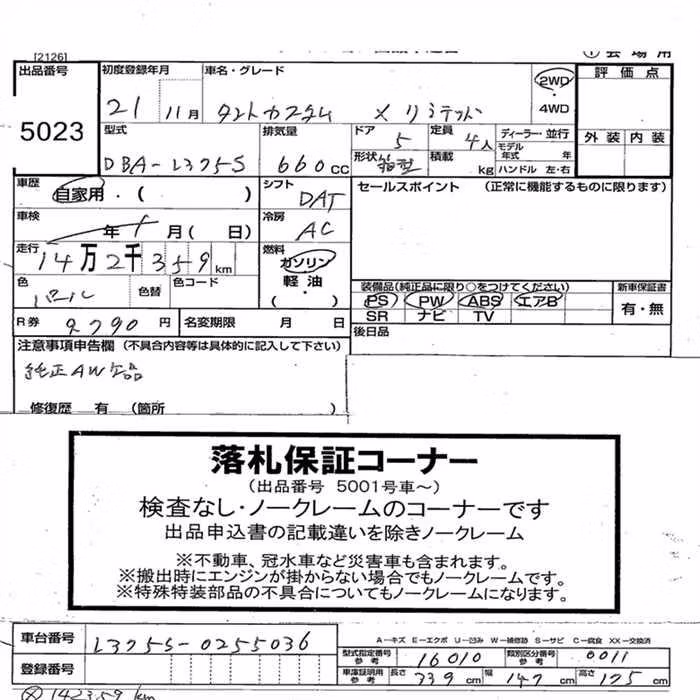 [2126]
① 会場用
出品番号 5023
初度登録年月 21 11月
車名・グレード タントカスタム X リミテッド
2WD ・ 4WD
評価点
外装 内装
型式 DBA-L375S
排気量 660cc
ドア 5
定員 4人
形状 箱型
積載 kg
ディーラー・並行
モデル年式 年
ハンドル 左・右
車歴 自家用 ・( )
シフト DAT
セールスポイント (正常に機能するものに限ります)
車検 年 月( 日)
冷房 AC
走行 14万2千359km
燃料 ガソリン
軽・油
( ・ )
色 パール
色替
色コード
装備品(純正品に限り○をつけてください)
PS PW ABS エアB
SR ナビ TV
新車保証書
有・無
R券 9,790円
名変期限 月 日
後日品
注意事項申告欄 (不具合内容等は具体的に記入して下さい)
純正AW欠品
修復歴 有 (箇所 )
落札保証コーナー
(出品番号 5001号車〜)
検査なし・ノークレームのコーナーです
出品申込書の記載違いを除きノークレーム
※不動車、冠水車など災害車も含まれます。
※搬出時にエンジンが掛からない場合でもノークレームです。
※特殊特装部品の不具合についてもノークレームになります。
車台番号 L375S-0255036
A-キズ E-エクボ U-凹み W-補修跡 S-サビ C-腐食 XX-交換済
登録番号
型式指定番号 参考 16010
類別区分番号 参考 0011
車庫証明用 参考 長さ 339cm 幅 147cm 高さ 175cm
142359 km